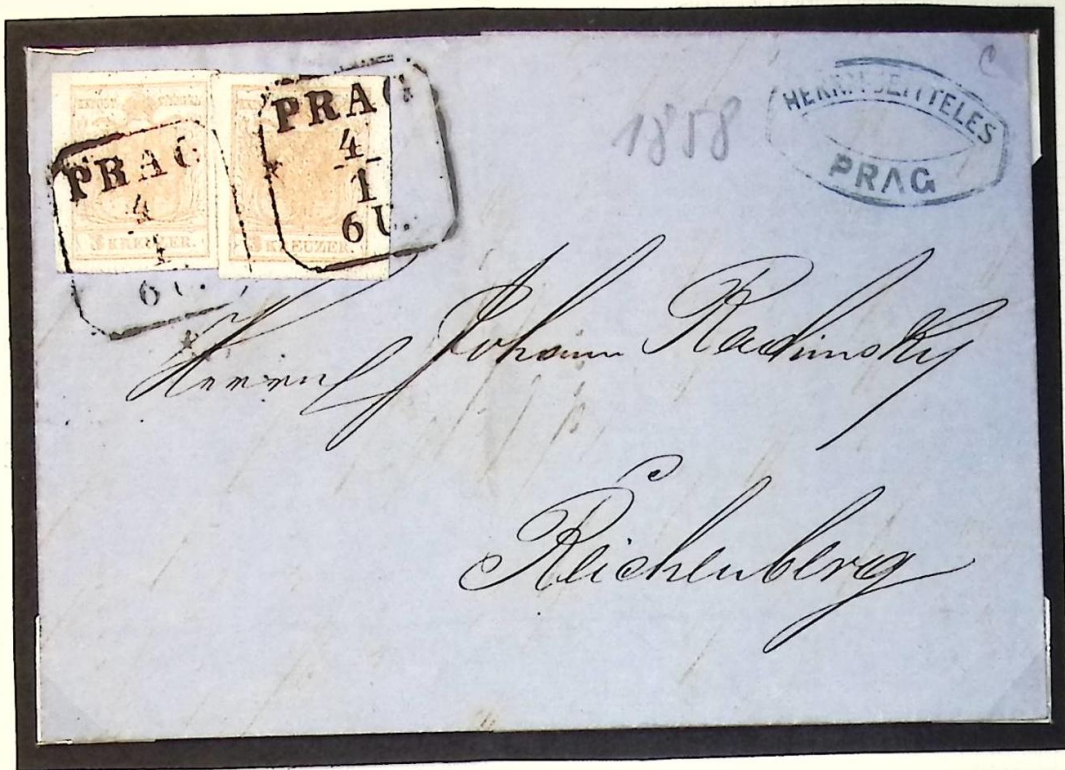 PRAG
4
1
6 U.
3 KREUZER.
PRAG
4
1
6 U.
KREUZER.
1858
C
JEITTELES
PRAG
Herrn
Johann Radimsky
Reichenberg